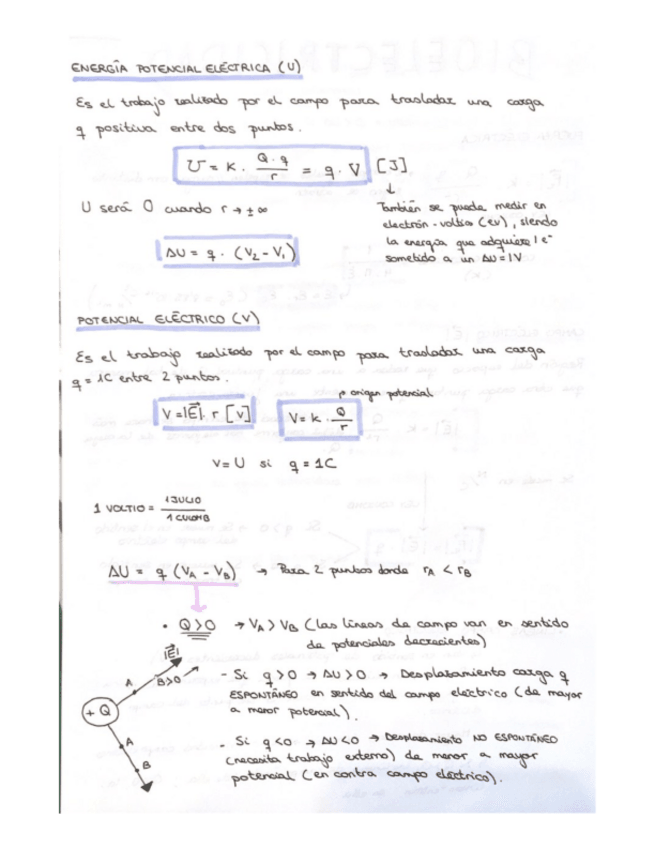 ENERGÍA POTENCIAL ELÉCTRICA (U)
Es el trabajo realizado por el campo para trasladar una carga
q positiva entre dos puntos.
U = K · Q · q / r = q · V [J]
↓
U será 0 cuando r → ± ∞
También se puede medir en
electrón-voltio (eV), siendo
la energía que adquiere 1 e⁻
sometido a un ΔU = 1V
ΔU = q · (V₂ - V₁)
POTENCIAL ELÉCTRICO (V)
Es el trabajo realizado por el campo para trasladar una carga
q = 1C entre 2 puntos.
origen potencial
V = |E⃗| · r [V]
V = K · Q / r
V = U si q = 1C
1 VOLTIO = 1 JULIO / 1 CULOMB
ΔU = q (VA - VB) → Para 2 puntos donde rA < rB
· Q > 0 → VA > VB (las líneas de campo van en sentido
de potenciales decrecientes)
|E⃗|
A
B > 0
- Si q > 0 → ΔU > 0 → Desplazamiento carga q
ESPONTÁNEO en sentido del campo eléctrico (de mayor
a menor potencial).
+ Q
A
B
- Si q < 0 → ΔU < 0 → Desplazamiento NO ESPONTÁNEO
(necesita trabajo externo) de menor a mayor
potencial (en contra campo eléctrico).